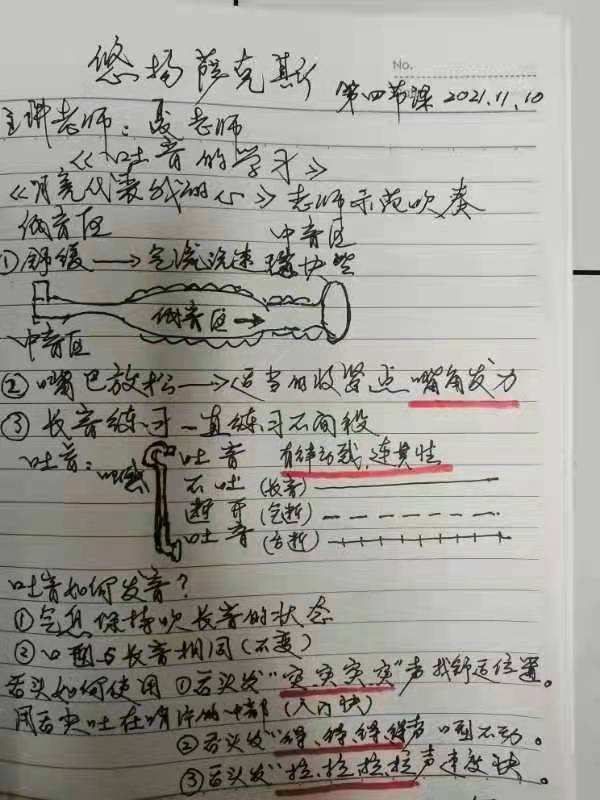 No.
悠扬萨克斯
第四节课 2021.11.10
主讲老师：夏老师
《吐音的学习》
《月亮代表我的心》老师示范吹奏
低音区 中音区
①舒缓→气流流速
低音区→
中音区
②嘴巴放松→适当的收紧点 嘴角发力
③长音练习一直练习不间段
吐音： 吐音 有律动感，连贯性
不吐（长音）
断开（气断）
吐音（舌断）
吐音如何发音？
①气息保持吹长音的状态
②口型与长音相同（不变）
舌头如何使用 ①舌头发“突、突、突、突”声找舒适位置。
用舌尖吐在哨片的中部（入门快）
②舌头发“得、得、得、得声 口型不动。
③舌头发“拉、拉、拉、拉声速度快。